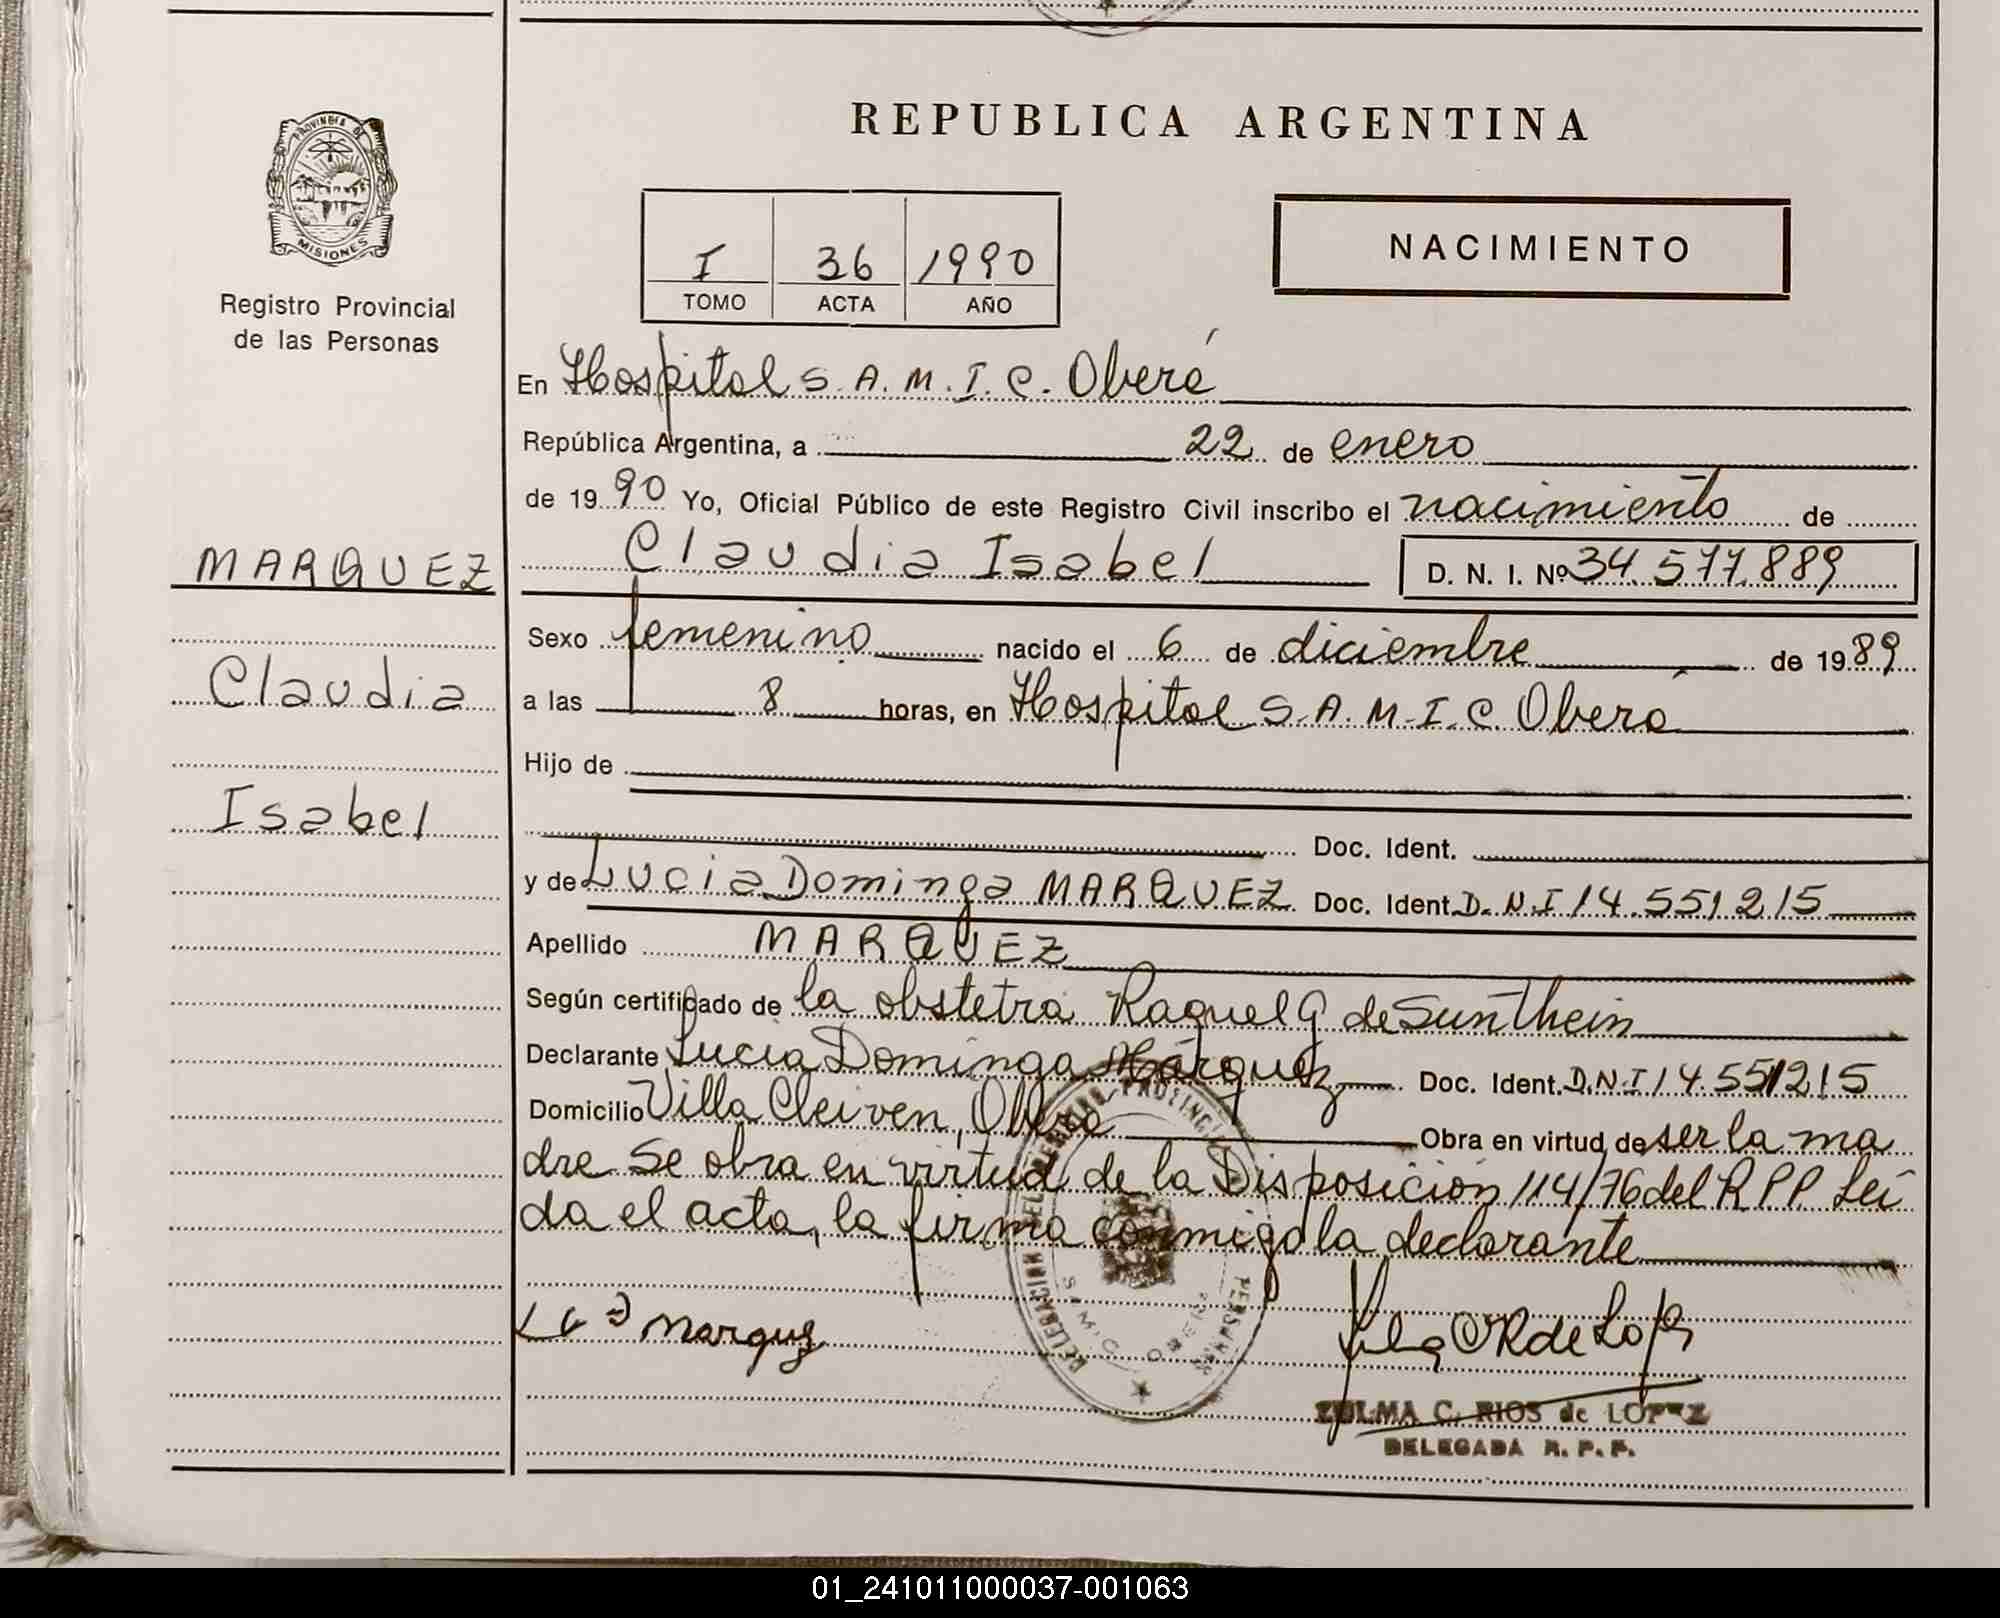 REPUBLICA ARGENTINA
PROVINCIA DE
MISIONES
Registro Provincial
de las Personas
I 36 1990
TOMO ACTA AÑO
NACIMIENTO
En Hospital S.A.M.I.C. Oberá
República Argentina, a 22 de enero
de 1990 Yo, Oficial Público de este Registro Civil inscribo el nacimiento de
MARQUEZ
Claudia Isabel D. N. I. Nº 34.577.889
Sexo femenino nacido el 6 de diciembre de 1989
Claudia
a las 8 horas, en Hospital S.A.M.I.C. Oberá
Hijo de
Isabel
Doc. Ident.
y de Lucia Dominga MARQUEZ Doc. Ident. D.N.I 14.551215
Apellido MARQUEZ
Según certificado de la obstetra Raquel G de Sunthein
Declarante Lucia Dominga Márquez Doc. Ident. D.N.I 14.551215
Domicilio Villa Cleiven, Oberá Obra en virtud de ser la ma
dre Se obra en virtud de la Disposición 114/76 del R P P. Leí
da el acta, la firma conmigo la declarante
Marquez
ZULMA C. RIOS de LOPEZ
DELEGADA R. P. P.
01_241011000037-001063